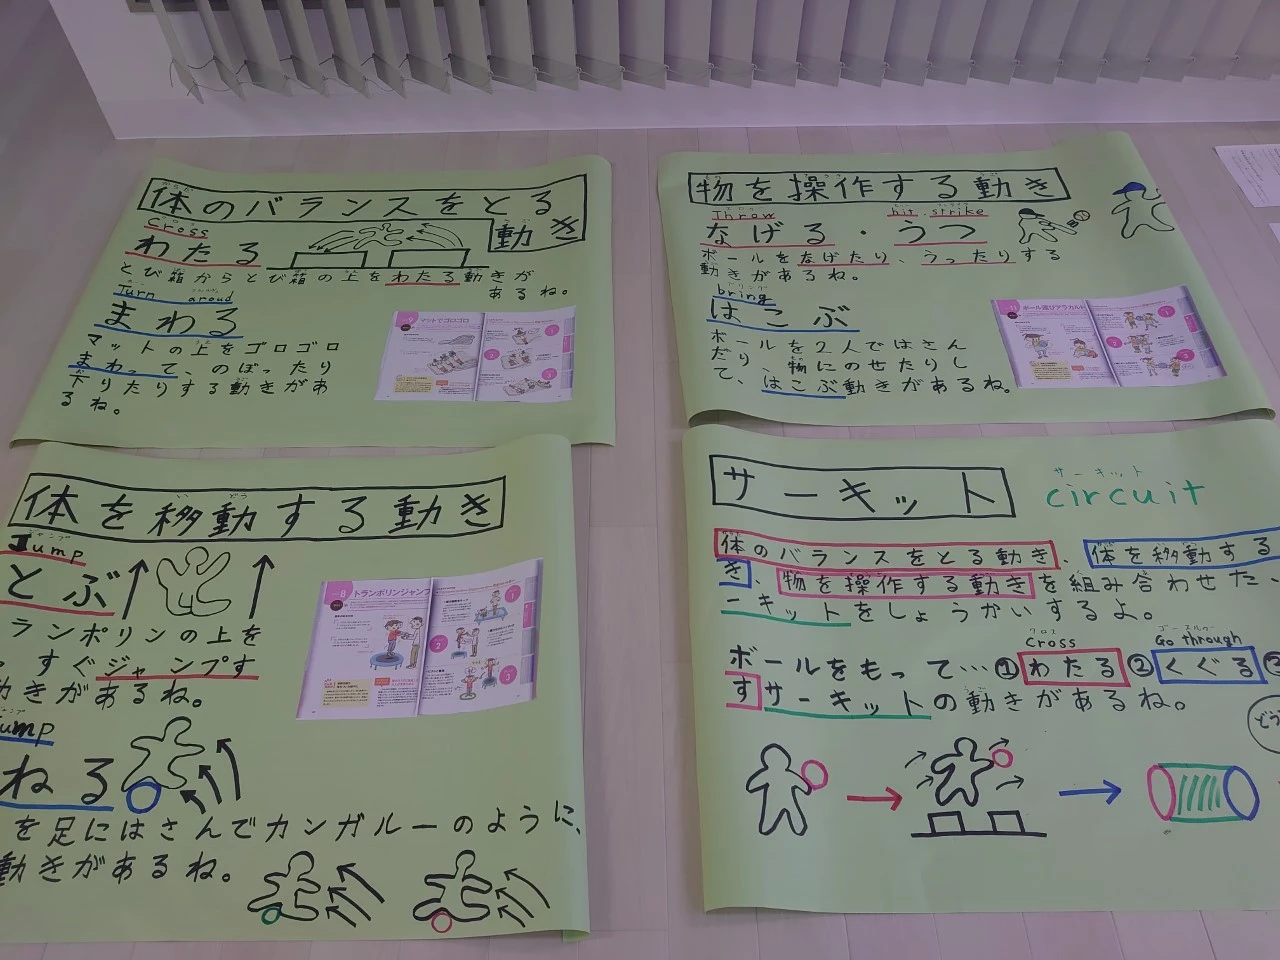 体のバランスをとる
動き
クロス
Cross
わたる
とび箱からとび箱の上をわたる動きが
あるね。
Turn aroud
まわる
マットの上をゴロゴロ
まわって、のぼったり
下りたりする動きがあ
るね。
9 マットでゴロゴロ
1
2
3
物を操作する動き
スロー
Throw
hit strike
なげる・うつ
ボールをなげたり、うったりする
動きがあるね。
bring
はこぶ
ボールを2人ではさん
だり、物にのせたりし
て、はこぶ動きがあるね。
11 ボール遊びアラカルト
1
2
3
体を移動する動き
ジャンプ
Jump
とぶ
ランポリンの上を
すぐジャンプす
動きがあるね。
ump
ねる
を足にはさんでカンガルーのように、
動きがあるね。
8 トランポリンジャンプ
1
2
3
サーキット
サーキット
circuit
体のバランスをとる動き、体を移動する
き、物を操作する動きを組み合わせた、
ーキットをしょうかいするよ。
クロス
Cross
ゴースルー
Go through
ボールをもって…①わたる②くぐる③
すサーキットの動きがあるね。
どう